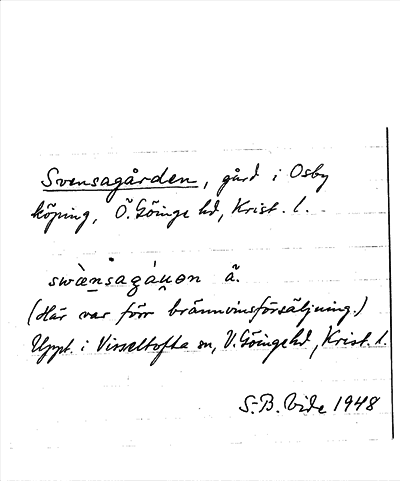 Svensagården, gård i Osby
köping, Ö. Göinge hd, Krist. l.
swæ̀nsagáu̯ən ã.
(Här var förr brännvinsförsäljning.)
Uppt. i Visseltofta sn, V. Göinge hd, Krist. l.
S.B. Vide 1948